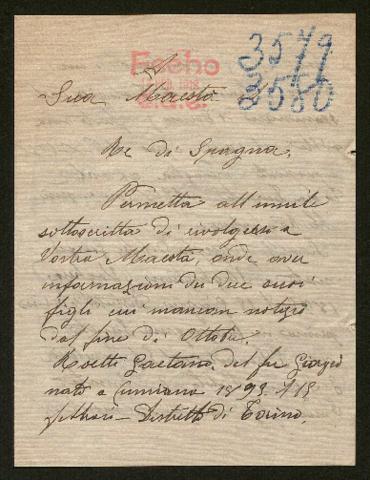 3579
3580
Fecho
Sua Maestà
Re di Spagna,
Permetta all'umile
sottoscritta di rivolgersi a
Vostra Maestà, onde aver
informazioni dei due suoi
figli cui mancan notizie
dal fine di Ottobre.
Gaetano del fu Giorgio
nato a Cumiana 1893
Distretto di Torino,